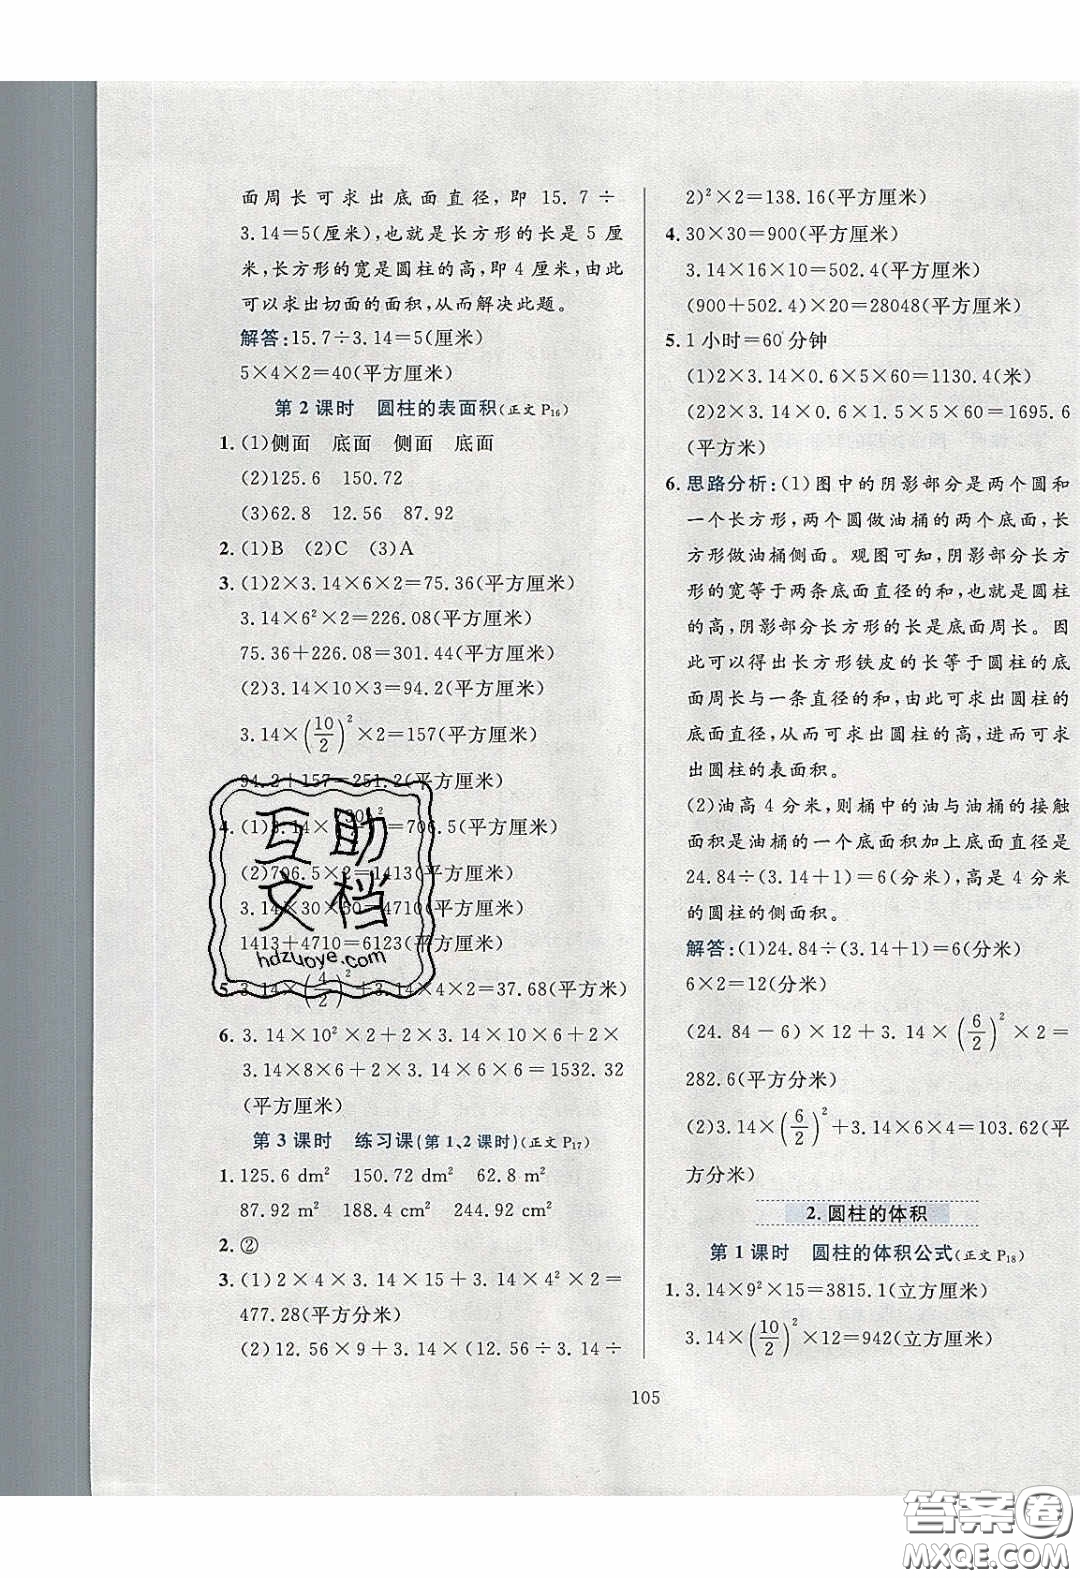 面周长可求出底面直径,即 15.7÷
3.14=5(厘米),也就是长方形的长是 5 厘
米,长方形的宽是圆柱的高,即 4 厘米,由此
可以求出切面的面积,从而解决此题。
解答:15.7÷3.14=5(厘米)
5×4×2=40(平方厘米)
第 2 课时 圆柱的表面积(正文 P₁₆)
1. (1)侧面 底面 侧面 底面
(2)125.6 150.72
(3)62.8 12.56 87.92
2. (1)B (2)C (3)A
3. (1)2×3.14×6×2=75.36(平方厘米)
3.14×6²×2=226.08(平方厘米)
75.36+226.08=301.44(平方厘米)
(2)3.14×10×3=94.2(平方厘米)
3.14×(10/2)²×2=157(平方厘米)
94.2+157=251.2(平方厘米)
4. (1)3.14×(30/2)²=706.5(平方厘米)
(2)706.5×2=1413(平方厘米)
3.14×30×50=4710(平方厘米)
1413+4710=6123(平方厘米)
5. 3.14×(4/2)²+3.14×4×2=37.68(平方米)
6. 3.14×10²×2+2×3.14×10×6+2×
3.14×8×6+2×3.14×6×6=1532.32
(平方厘米)
第 3 课时 练习课(第 1、2 课时)(正文 P₁₇)
1. 125.6 dm² 150.72 dm² 62.8 m²
87.92 m² 188.4 cm² 244.92 cm²
2. ②
3. (1)2×4×3.14×15+3.14×4²×2=
477.28(平方分米)
(2)12.56×9+3.14×(12.56÷3.14÷
2)²×2=138.16(平方厘米)
4. 30×30=900(平方厘米)
3.14×16×10=502.4(平方厘米)
(900+502.4)×20=28048(平方厘米)
5. 1 小时=60 分钟
(1)2×3.14×0.6×5×60=1130.4(米)
(2)2×3.14×0.6×1.5×5×60=1695.6
(平方米)
6. 思路分析:(1)图中的阴影部分是两个圆和
一个长方形,两个圆做油桶的两个底面,长
方形做油桶侧面。观图可知,阴影部分长方
形的宽等于两条底面直径的和,也就是圆柱
的高,阴影部分长方形的长是底面周长。因
此可以得出长方形铁皮的长等于圆柱的底
面周长与一条直径的和,由此可求出圆柱的
底面直径,从而可求出圆柱的高,进而可求
出圆柱的表面积。
(2)油高 4 分米,则桶中的油与油桶的接触
面积是油桶的一个底面积加上底面直径是
24.84÷(3.14+1)=6(分米),高是 4 分米
的圆柱的侧面积。
解答:(1)24.84÷(3.14+1)=6(分米)
6×2=12(分米)
(24.84-6)×12+3.14×(6/2)²×2=
282.6(平方分米)
(2)3.14×(6/2)²+3.14×6×4=103.62(平
方分米)
2.圆柱的体积
第 1 课时 圆柱的体积公式(正文 P₁₈)
1. 3.14×9²×15=3815.1(立方厘米)
3.14×(10/2)²×12=942(立方厘米)
105
互助
文档
hdzuoye.com
答案卷
MXQE.COM